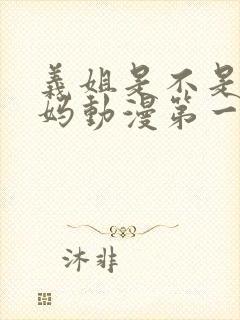 義姐是不是
妈動漫第一
沐非